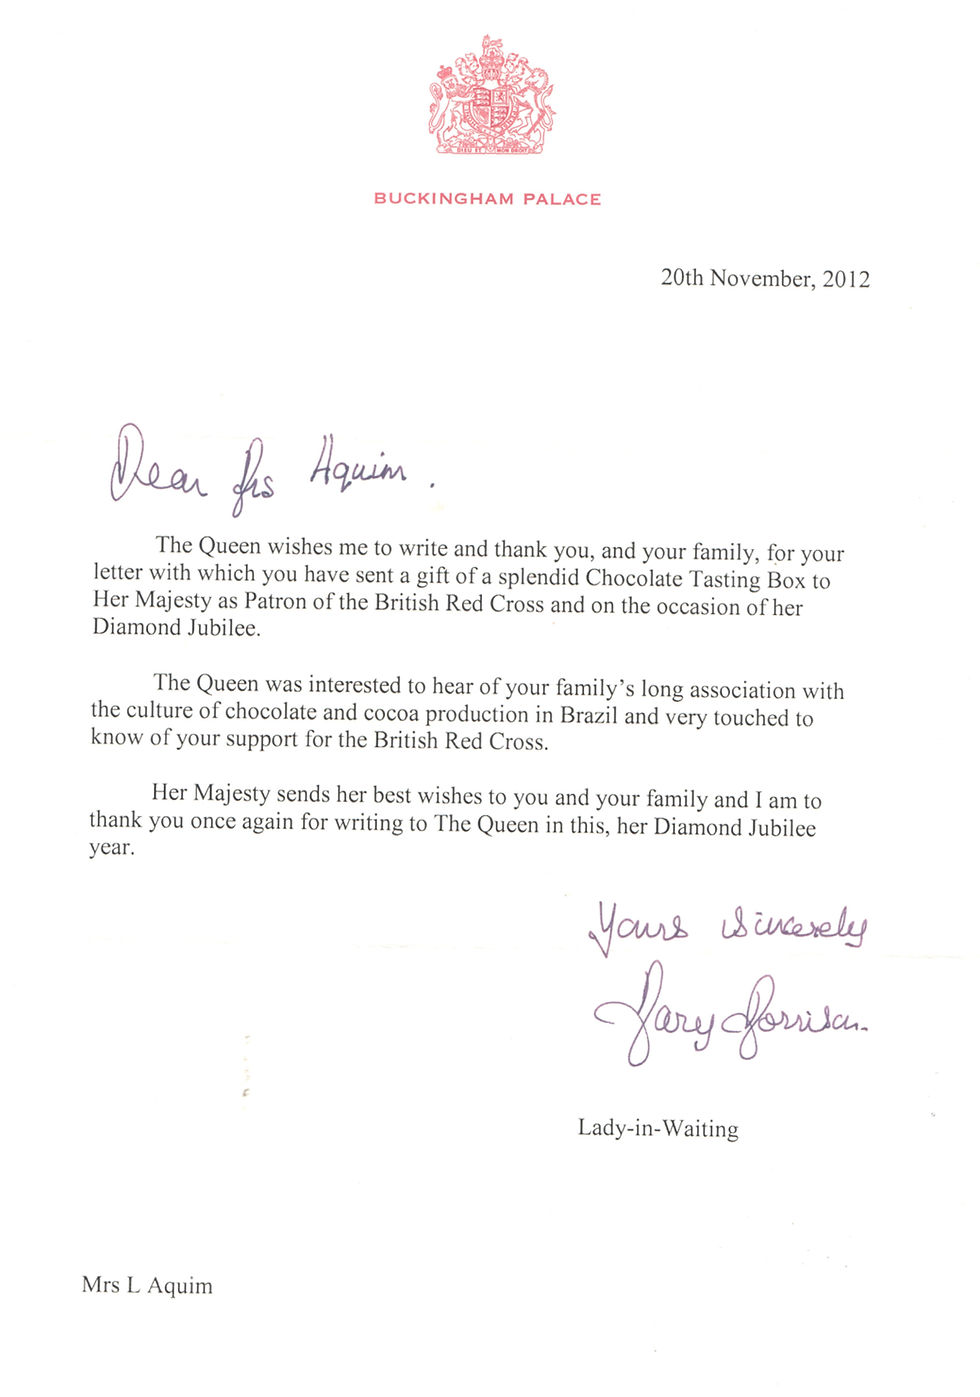 DIEU ET MON DROIT
BUCKINGHAM PALACE
20th November, 2012
Dear Mrs Aquim.
The Queen wishes me to write and thank you, and your family, for your
letter with which you have sent a gift of a splendid Chocolate Tasting Box to
Her Majesty as Patron of the British Red Cross and on the occasion of her
Diamond Jubilee.
The Queen was interested to hear of your family's long association with
the culture of chocolate and cocoa production in Brazil and very touched to
know of your support for the British Red Cross.
Her Majesty sends her best wishes to you and your family and I am to
thank you once again for writing to The Queen in this, her Diamond Jubilee
year.
Yours sincerely
Mary Morrison.
Lady-in-Waiting
Mrs L Aquim